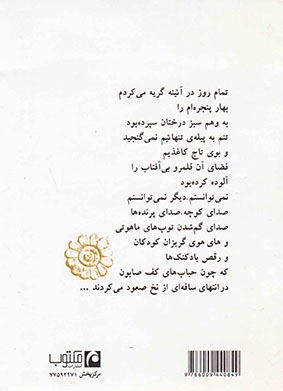 تمام روز در آئینه گریه می‌کردم
بهار پنجره‌ام را
به وهم سبز درختان سپرده‌بود
تنم به پیله‌ی تنهائیم نمی‌گنجید
و بوی تاج کاغذیم
فضای آن قلمرو بی‌آفتاب را
آلوده کرده‌بود
نمی‌توانستم،دیگر نمی‌توانستم
صدای کوچه،صدای پرنده‌ها
صدای گم‌شدن توپ‌های ماهوتی
و های هوی گریزان کودکان
و رقص بادکنک‌ها
که چون حباب‌های کف صابون
درانتهای ساقه‌ای از نخ صعود می‌کردند ...
انتشارات مکتوب
مرکزپخش ۷۷۵۹۲۲۷۱